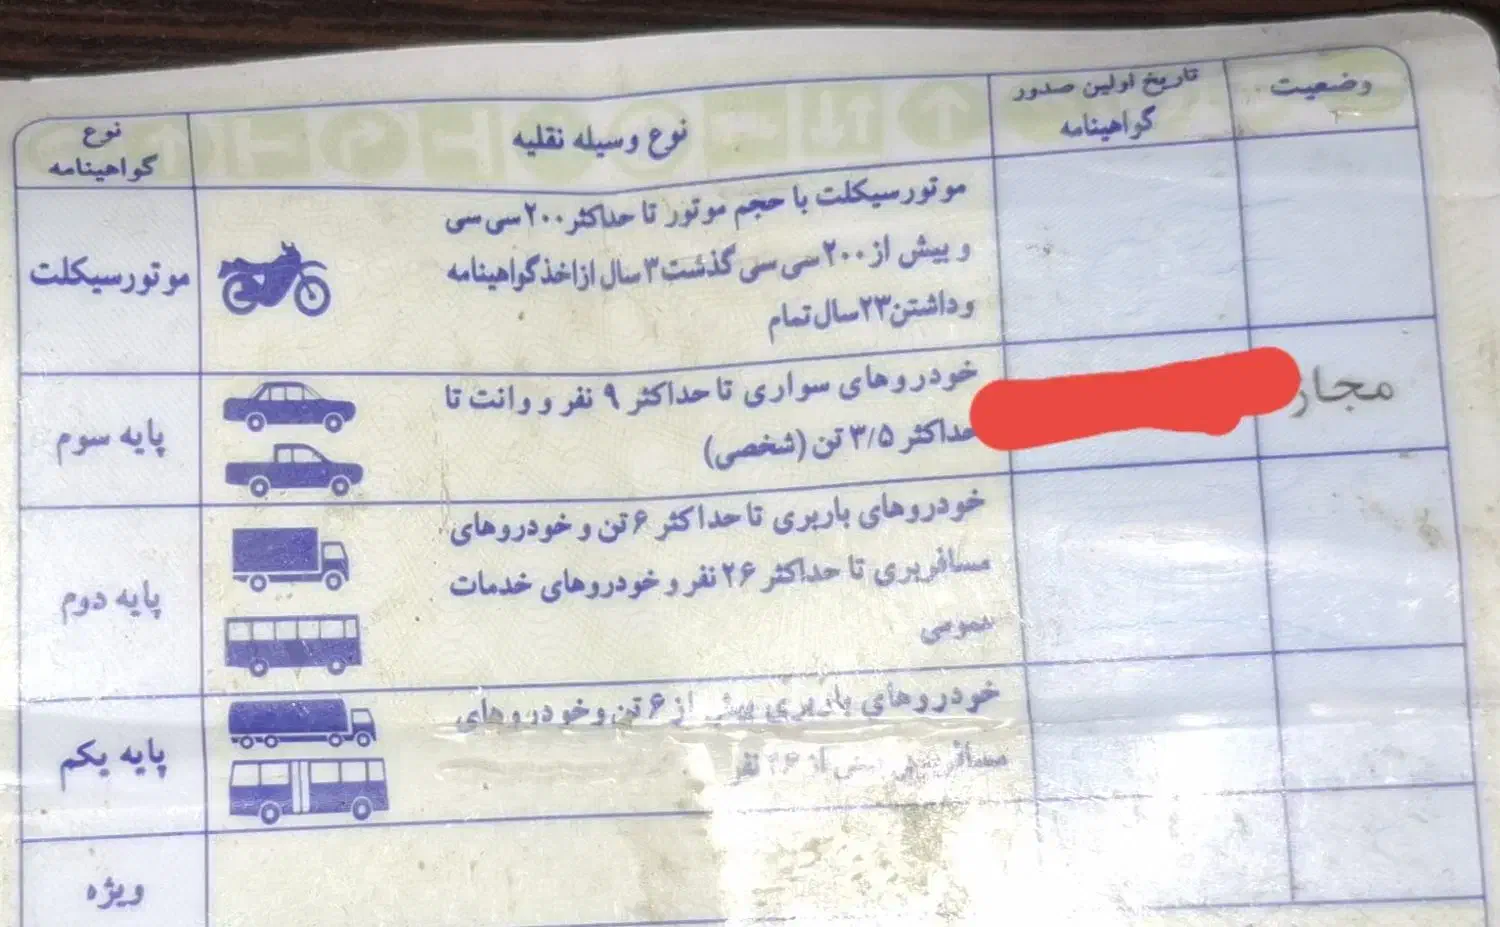 نوع گواهینامه
نوع وسیله نقلیه
تاریخ اولین صدور گواهینامه
وضعیت
موتورسیکلت
موتورسیکلت با حجم موتور تا حداکثر ۲۰۰ سی سی
و بیش از ۲۰۰ سی سی گذشت ۳ سال از اخذ گواهینامه
و داشتن ۲۳ سال تمام
پایه سوم
خودروهای سواری تا حداکثر ۹ نفر و وانت تا
حداکثر ۳/۵ تن (شخصی)
مجاز
پایه دوم
خودروهای باربری تا حداکثر ۶ تن و خودروهای
مسافربری تا حداکثر ۲۶ نفر و خودروهای خدمات
عمومی
پایه یکم
خودروهای باربری بیش از ۶ تن و خودروهای
مسافربری بیش از ۲۶ نفر
ویژه